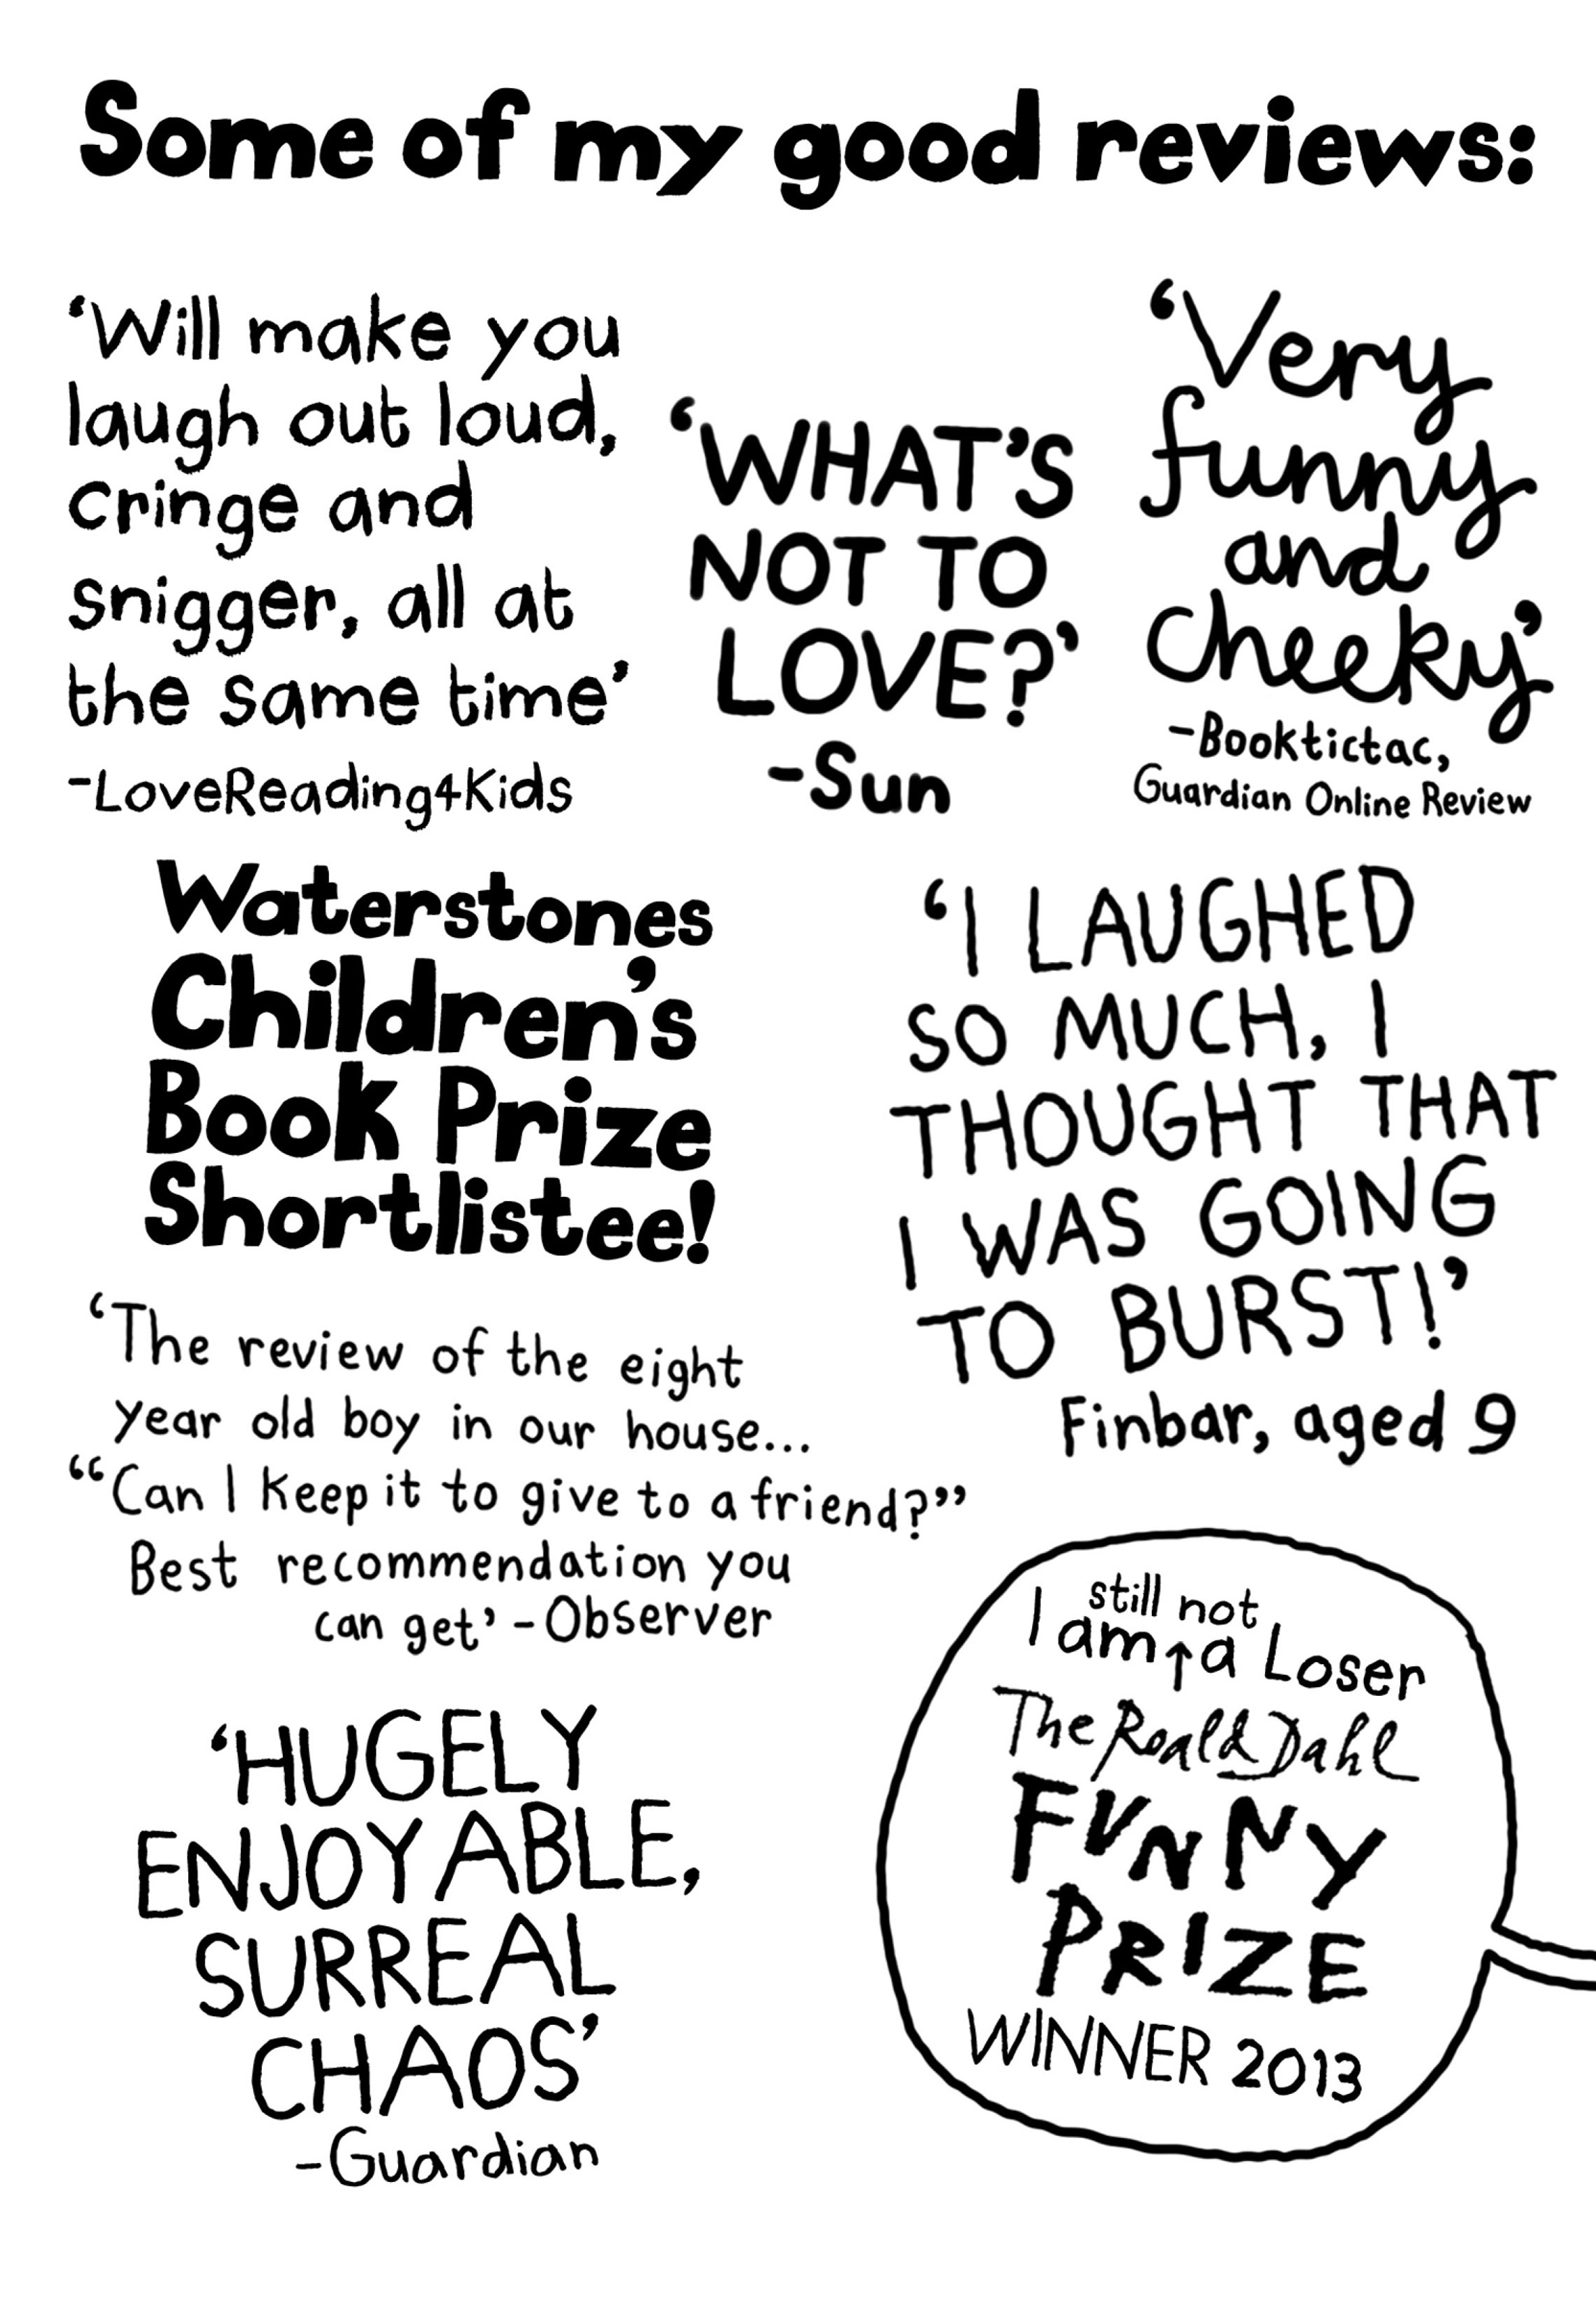 Some of my good reviews:
‘Will make you
laugh out loud,
cringe and
snigger, all at
the same time’
-LoveReading4Kids
‘WHAT’S
NOT TO
LOVE?’
-Sun
‘Very
funny
and
cheeky’
-Booktictac,
Guardian Online Review
Waterstones
Children’s
Book Prize
Shortlistee!
‘I LAUGHED
SO MUCH, I
THOUGHT THAT
I WAS GOING
TO BURST!’
Finbar, aged 9
‘The review of the eight
year old boy in our house...
“Can I keep it to give to a friend?”
Best recommendation you
can get’ -Observer
‘HUGELY
ENJOYABLE,
SURREAL
CHAOS’
-Guardian
still not
I am↑a Loser
The Roald Dahl
FUNNY
PRIZE
WINNER 2013